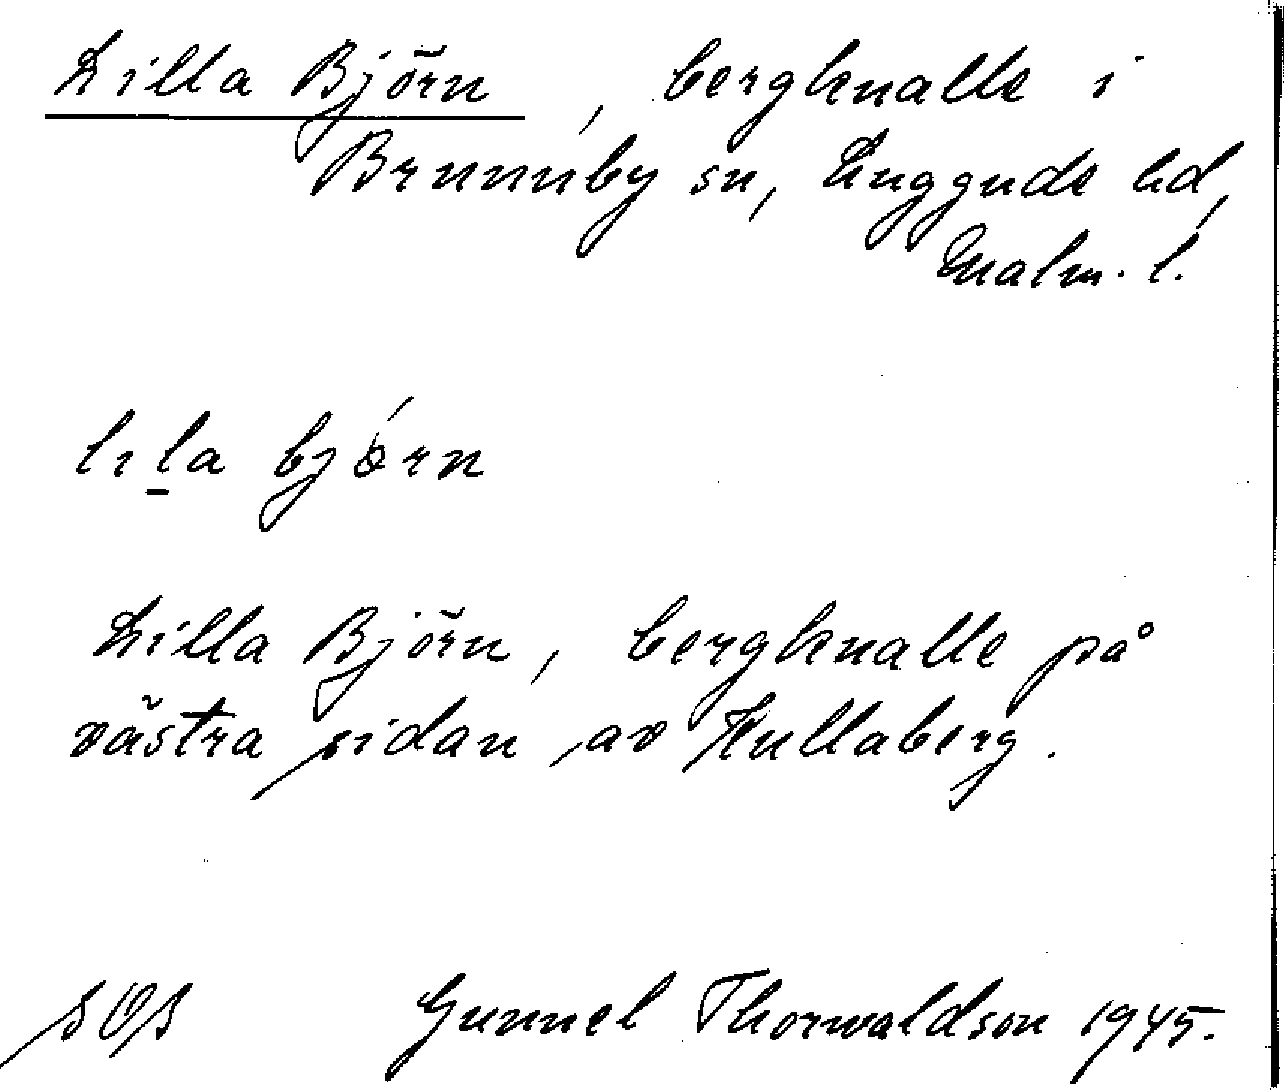 Lilla Björn, bergknalle i
Brunnby sn, Luggude hd,
Malm. l.
lila bjǿrn
Lilla Björn, bergknalle på
västra sidan av Kullaberg.
SOS Gunnel Thorwaldson 1945.